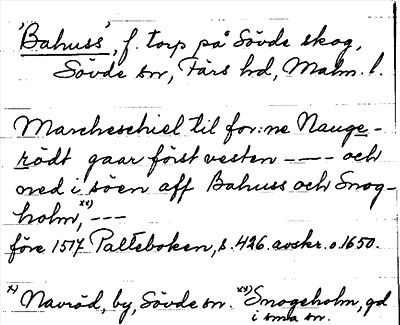 'Bahuss', f. torp på Sövde skog,
Sövde sn, Färs hd, Malm. l.
Marcheschiel til for:ne Nauge-
rödt gaar först vesten ---- och
ned i söen aff Bahuss och Snog-
holm, xx) ---
före 1517 Palteboken, s. 426. avskr. o. 1650.
x) Navröd, by, Sövde sn. xx) Snogeholm, gd
i sma sn.